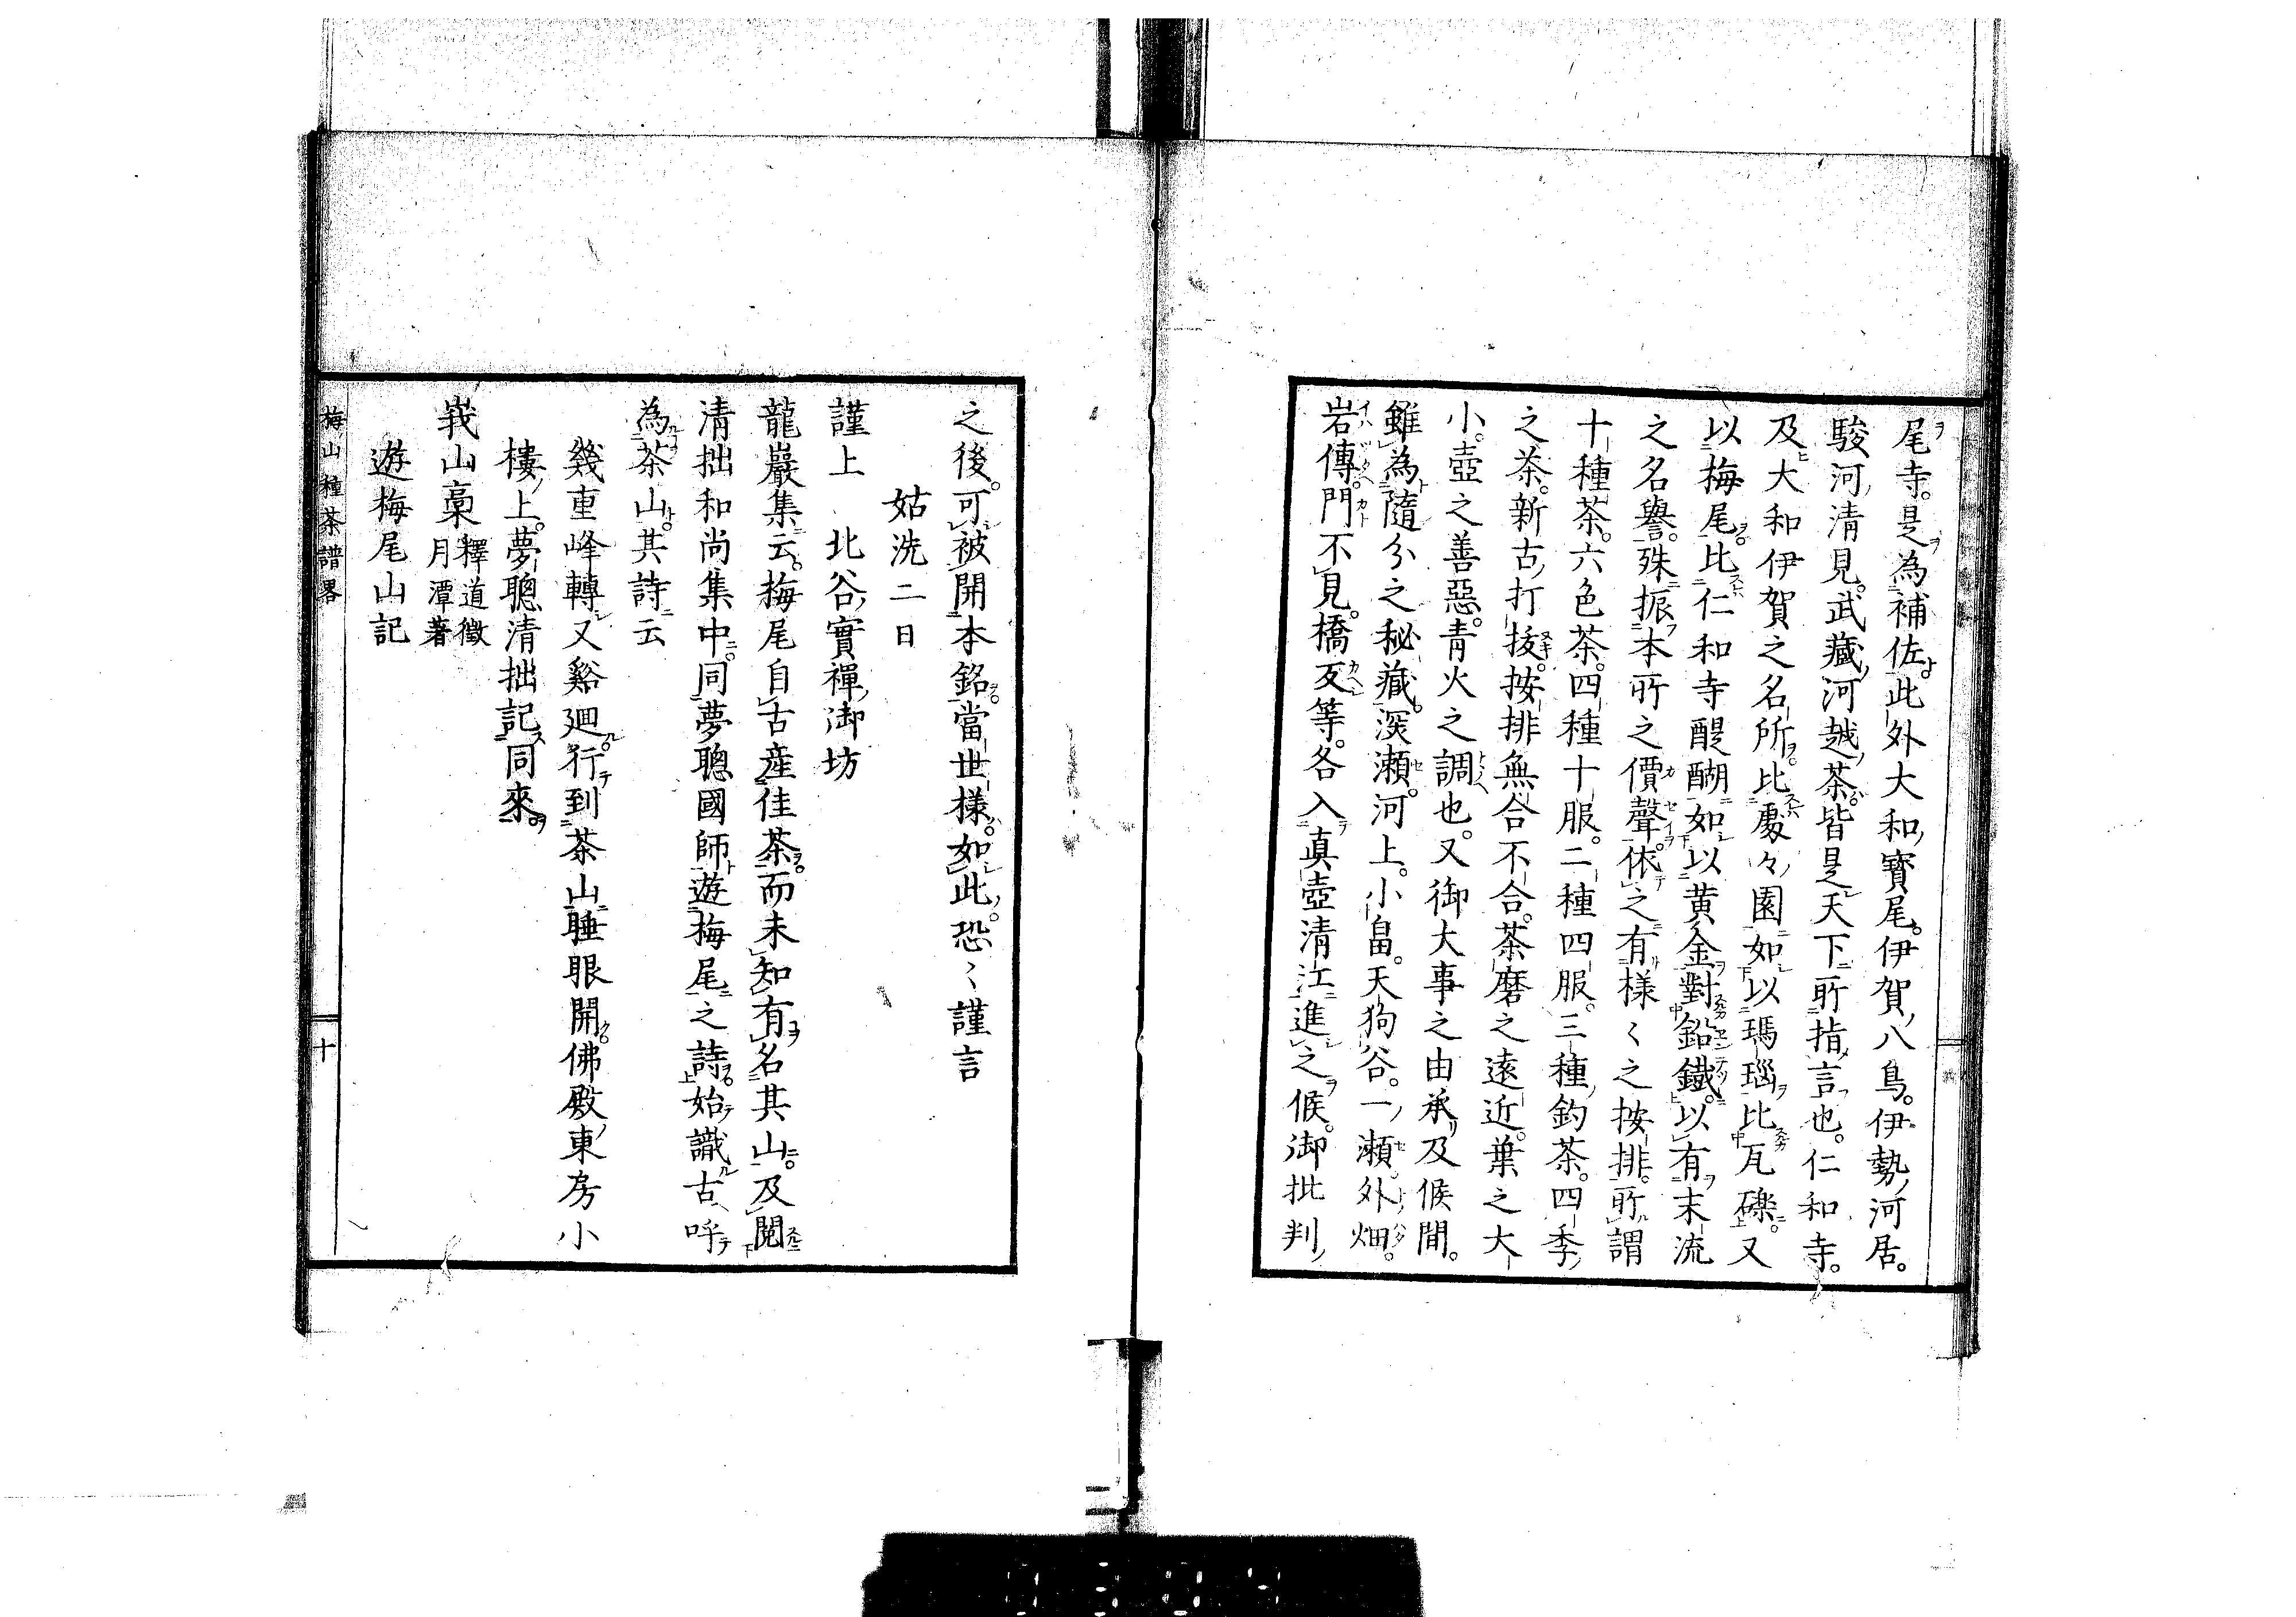 尾寺。是為補佐。此外大和寳尾。伊賀八鳥。伊勢河居。
駿河清見。武藏河越茶。皆是天下所指言也。仁和寺。
及大和伊賀之名所。比處々園。如以瑪瑙比瓦礫。又
以梅尾。比仁和寺醍醐。如以黄金對鉛鐵。以有末流
之名譽。殊振本所之價聲。依之有様〻之按排。所謂
十種茶。六色茶。四種十服。二種四服。三種釣茶。四季
之茶。新古打拔。按排無合不合。茶磨之遠近。葉之大
小。壺之善惡。青火之調也。又御大事之由承及候間。
雖為隨分之秘藏。深瀬。河上。小畠。天狗谷。一瀬。外畑。
岩傳。門不見。橋爰等。各入真壺清江進之候。御批判
之後。可被開本銘。當世様。如此。恐〻謹言
姑洗二日
謹上　北谷實禪御坊
龍巖集云。梅尾自古産佳茶。而未知有名其山。及閲
清拙和尚集中。同夢聰國師遊梅尾之詩。始識古呼
為茶山。其詩云
幾重峰轉又谿廻。行到茶山睡眼開。佛殿東房小
樓上。夢聰清拙記同來。
峩山稾 釋道徴月潭著
遊梅尾山記
梅山種茶譜畧
十